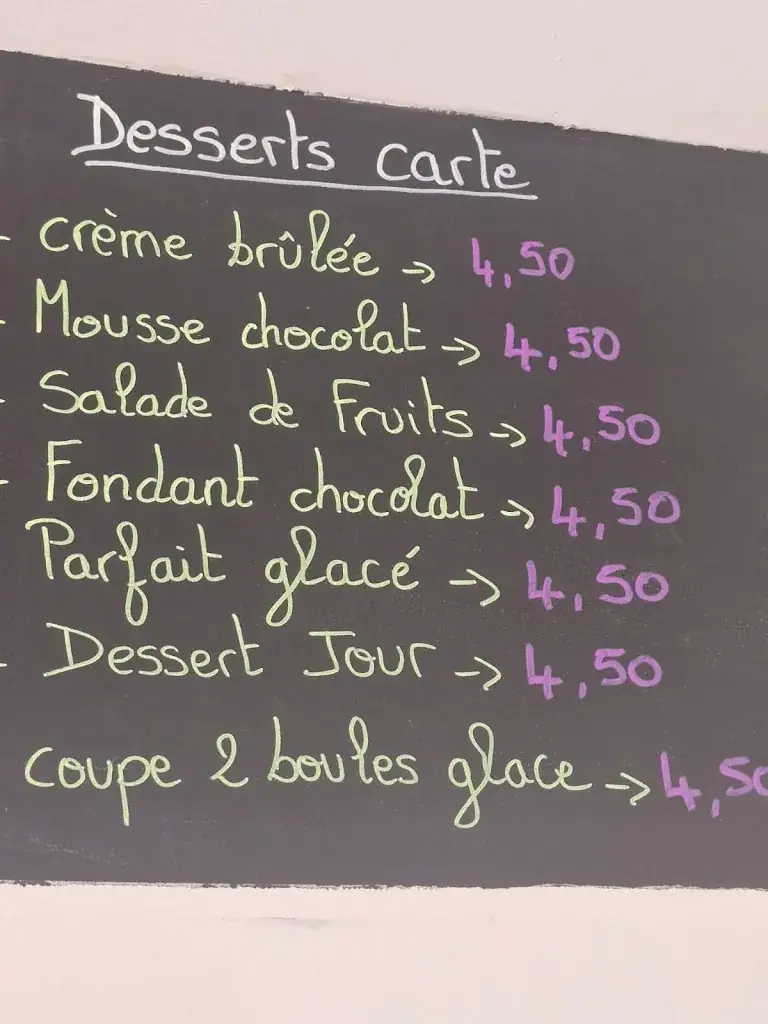 Desserts carte
- crème brûlée → 4,50
- Mousse chocolat → 4,50
- Salade de Fruits → 4,50
- Fondant chocolat → 4,50
Parfait glacé → 4,50
- Dessert Jour → 4,50
coupe 2 boules glace → 4,50